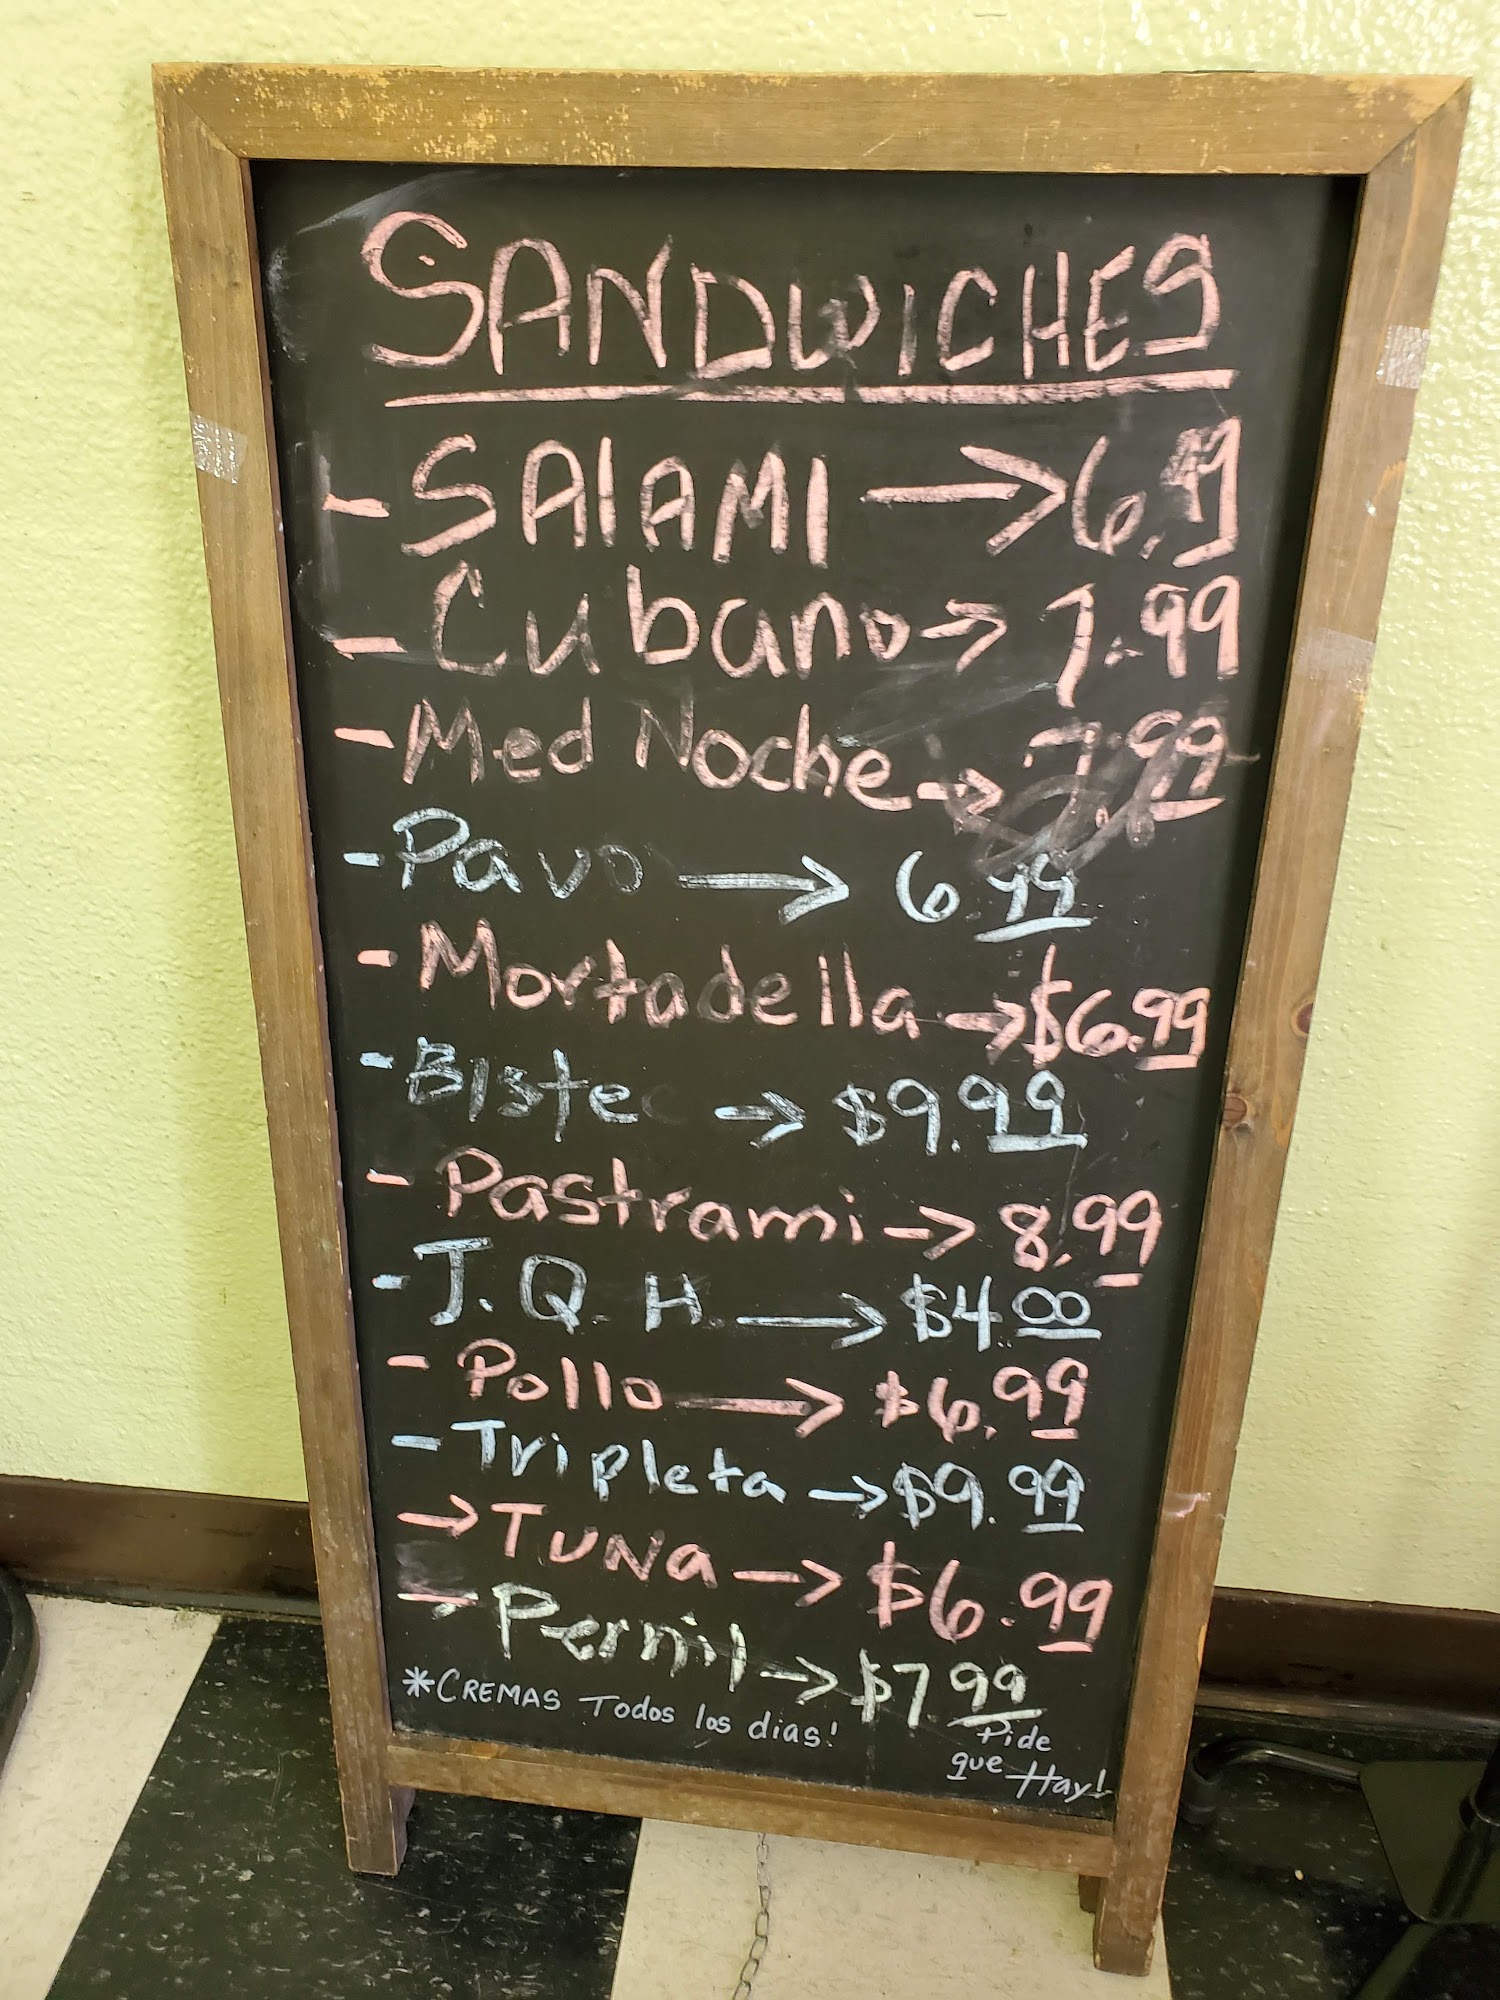 SANDWICHES
- SAlAMI → 6.99
- Cubano → 7.99
- Med Noche → 7.99
- Pavo → 6.99
- Mortadella → $6.99
- BIstec → $9.99
- Pastrami → 8.99
- J.Q.H. → $4.00
- Pollo → $6.99
- Tripleta → $9.99
→ TUNa → $6.99
- Pernil → $7.99
*CREMAS Todos los dias!
Pide
que Hay!